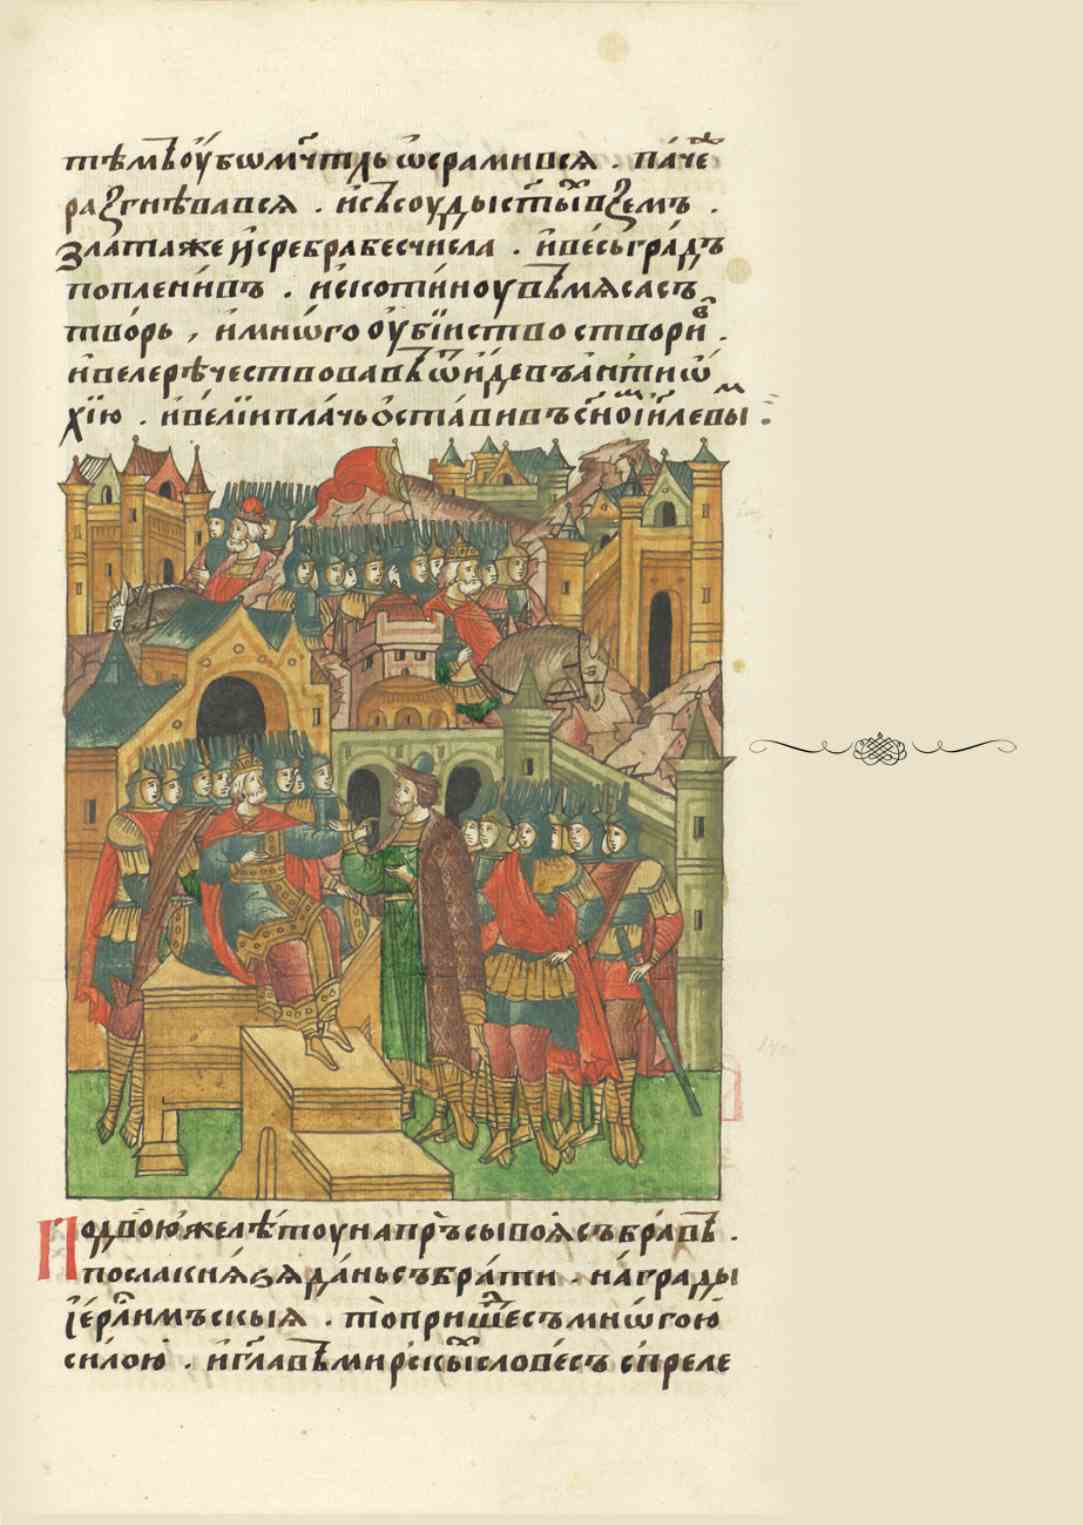 тѣмъ оубѡ мч҃тль ѡсрамивсѧ . па́че
разгнѣвавсѧ . и҆ съсоуды ст҃ы́ѧ взе́мъ .
злата же и҆ сребра бесчисла . и҆ ве́сь гра́дъ
поплени́въ . и҆ скоти́ноу въ мѧса съ
тво́рь , и҆ мнѡ́го оу҆бїиство створи́в .
и҆ велерѣчествовавъ ѿи́де въ а҆нтиѡ҆
хїю . и҆ ве́лїи пла́чь ѡ҆ста́вивъ сн҃ом і҆и҃левым :
По двою́ же лѣ́тоу на пр҃ъсы воѧ събра́въ .
посла кнѧ́зѧ да́нь събра́ти . на́ грады
і҆ер҃лимъскыѧ . то́ прише́д съ мнѡ́гою
си́лою . и҆ гл҃авъ мирскы́х слове́съ с преле